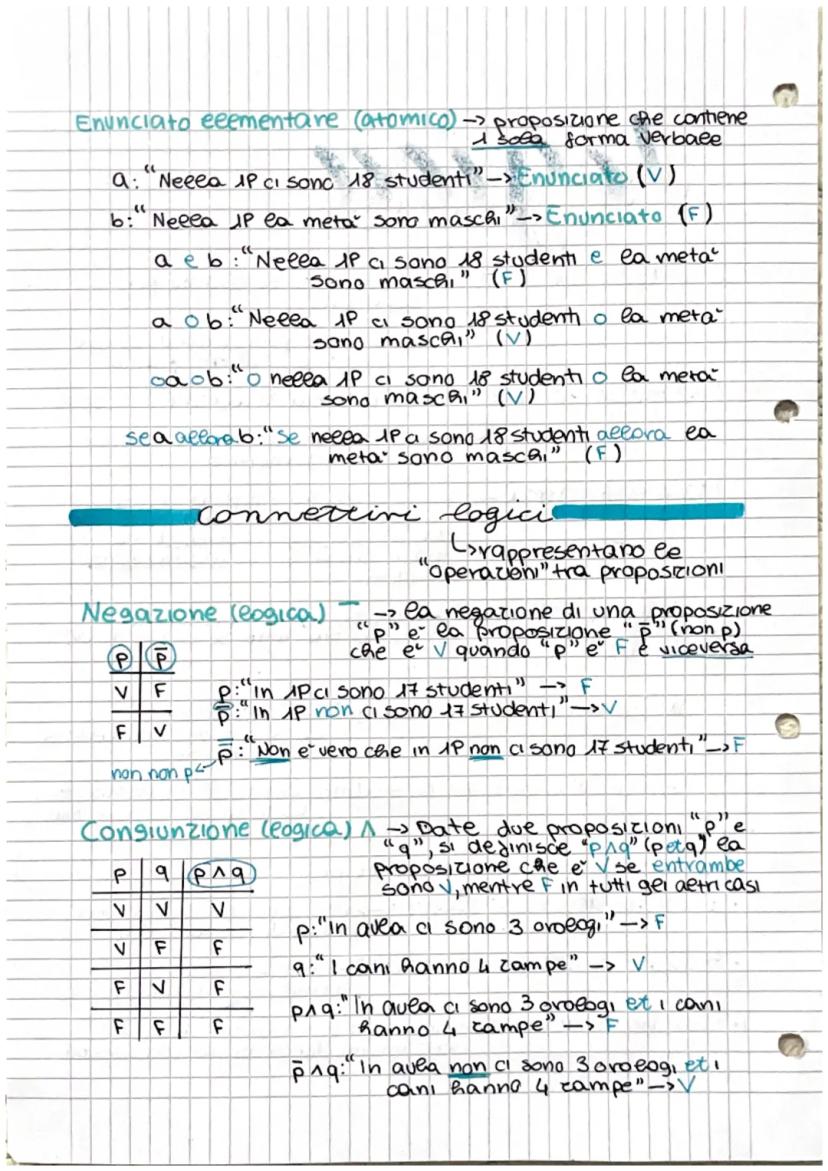 Enunciato elementare (atomico) → proposizione che contiene
1 sola forma verbale
a: "Nella 1P ci sono 18 studenti" → Enunciato (V)
b: "Nella 1P la metà sono maschi" → Enunciato (F)
a e b: "Nella 1P ci sono 18 studenti e la metà
sono maschi" (F)
a o b: "Nella 1P ci sono 18 studenti o la metà
sono maschi" (V)
o a o b: "o nella 1P ci sono 18 studenti o la metà
sono maschi" (V)
se a allora b: "Se nella 1P ci sono 18 studenti allora la
metà sono maschi" (F)
connettivi logici
↳ rappresentano le
"operazioni" tra proposizioni
Negazione (logica) ‾ → la negazione di una proposizione
"p" è la proposizione "p̅" (non p)
che è V quando "p" è F e viceversa
p p̅
V F
F V
p: "In 1P ci sono 17 studenti" → F
p̅: "In 1P non ci sono 17 studenti" → V
p̿: "Non è vero che in 1P non ci sono 17 studenti" → F
non non p
Congiunzione (logica) ∧ → Date due proposizioni "p" e
"q", si definisce "p∧q" (p et q) la
proposizione che è V se entrambe
sono V, mentre F in tutti gli altri casi
p q p∧q
V V V
V F F
F V F
F F F
p: "In aula ci sono 3 orologi" → F
q: "I cani hanno 4 zampe" → V
p∧q: "In aula ci sono 3 orologi et i cani
hanno 4 zampe" → F
p̅∧q: "In aula non ci sono 3 orologi et i
cani hanno 4 zampe" → V